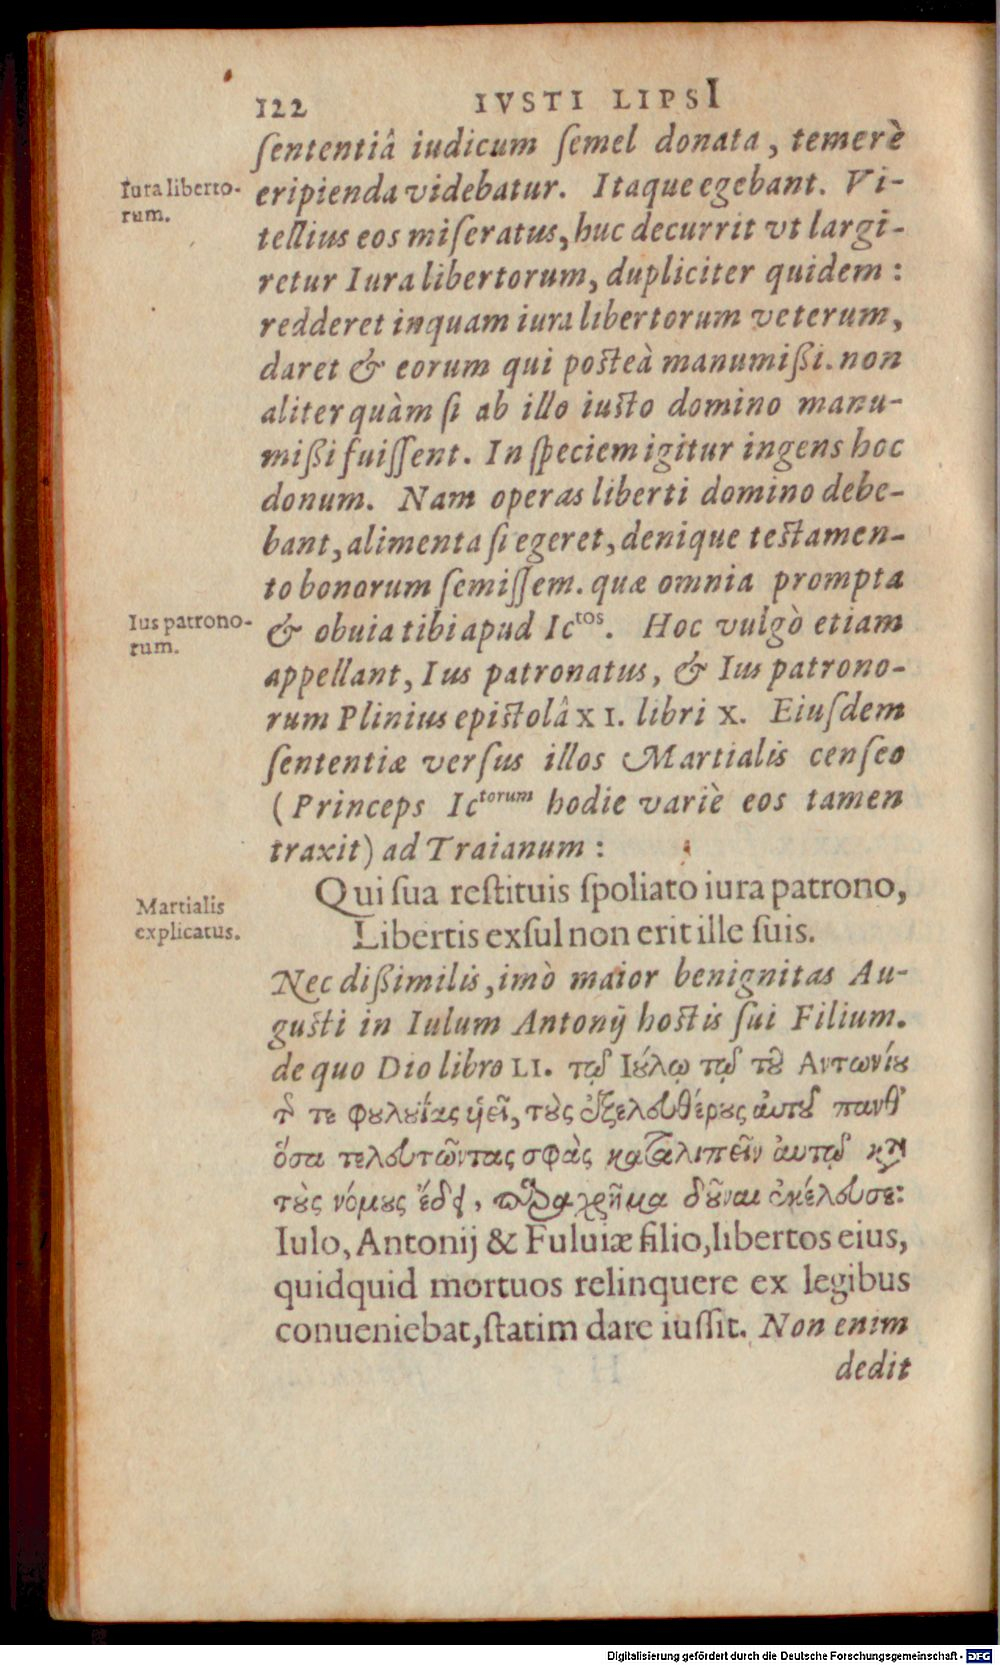 122 IVSTI LIPSI
ſententiâ iudicum ſemel donata, temerè
Iura liberto-
rum.
eripienda videbatur. Itaque egebant. Vi-
tellius eos miſeratus, huc decurrit vt largi-
retur Iura libertorum, dupliciter quidem:
redderet inquam iura libertorum veterum,
daret & eorum qui poſteà manumißi. non
aliter quàm ſi ab illo iuſto domino manu-
mißi fuiſſent. In ſpeciem igitur ingens hoc
donum. Nam operas liberti domino debe-
bant, alimenta ſi egeret, denique teſtamen-
to bonorum ſemiſſem. quæ omnia prompta
Ius patrono-
rum.
& obuia tibi apud Ictos. Hoc vulgò etiam
appellant, Ius patronatus, & Ius patrono-
rum Plinius epiſtolâ XI. libri X. Eiuſdem
ſententiæ verſus illos Martialis cenſeo
(Princeps Ictorum hodie variè eos tamen
traxit) ad Traianum:
Qui ſua reſtituis ſpoliato iura patrono,
Martialis
explicatus.
Libertis exſul non erit ille ſuis.
Nec dißimilis, imò maior benignitas Au-
guſti in Iulum Antonij hoſtis ſui Filium.
de quo Dio libro LI. τῷ Ιούλῳ τῷ τοῦ Αντωνίου
τῆς τε φουλουΐας ὑεῖ, τοὺς ἐξελευθέρους ἀυτοῦ πανθ᾽
ὅσα τελευτῶντας σφὰς καταλιπεῖν ἀυτῷ κατὰ
τοὺς νόμους ἔδει, παραχρῆμα δοῦναι ἐκέλευσε:
Iulo, Antonij & Fuluiæ filio, libertos eius,
quidquid mortuos relinquere ex legibus
conueniebat, ſtatim dare iuſſit. Non enim
dedit
Digitalisierung gefördert durch die Deutsche Forschungsgemeinschaft - DFG